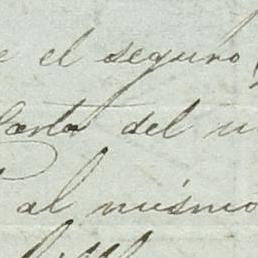 e el seguro
Carta del
al mismo